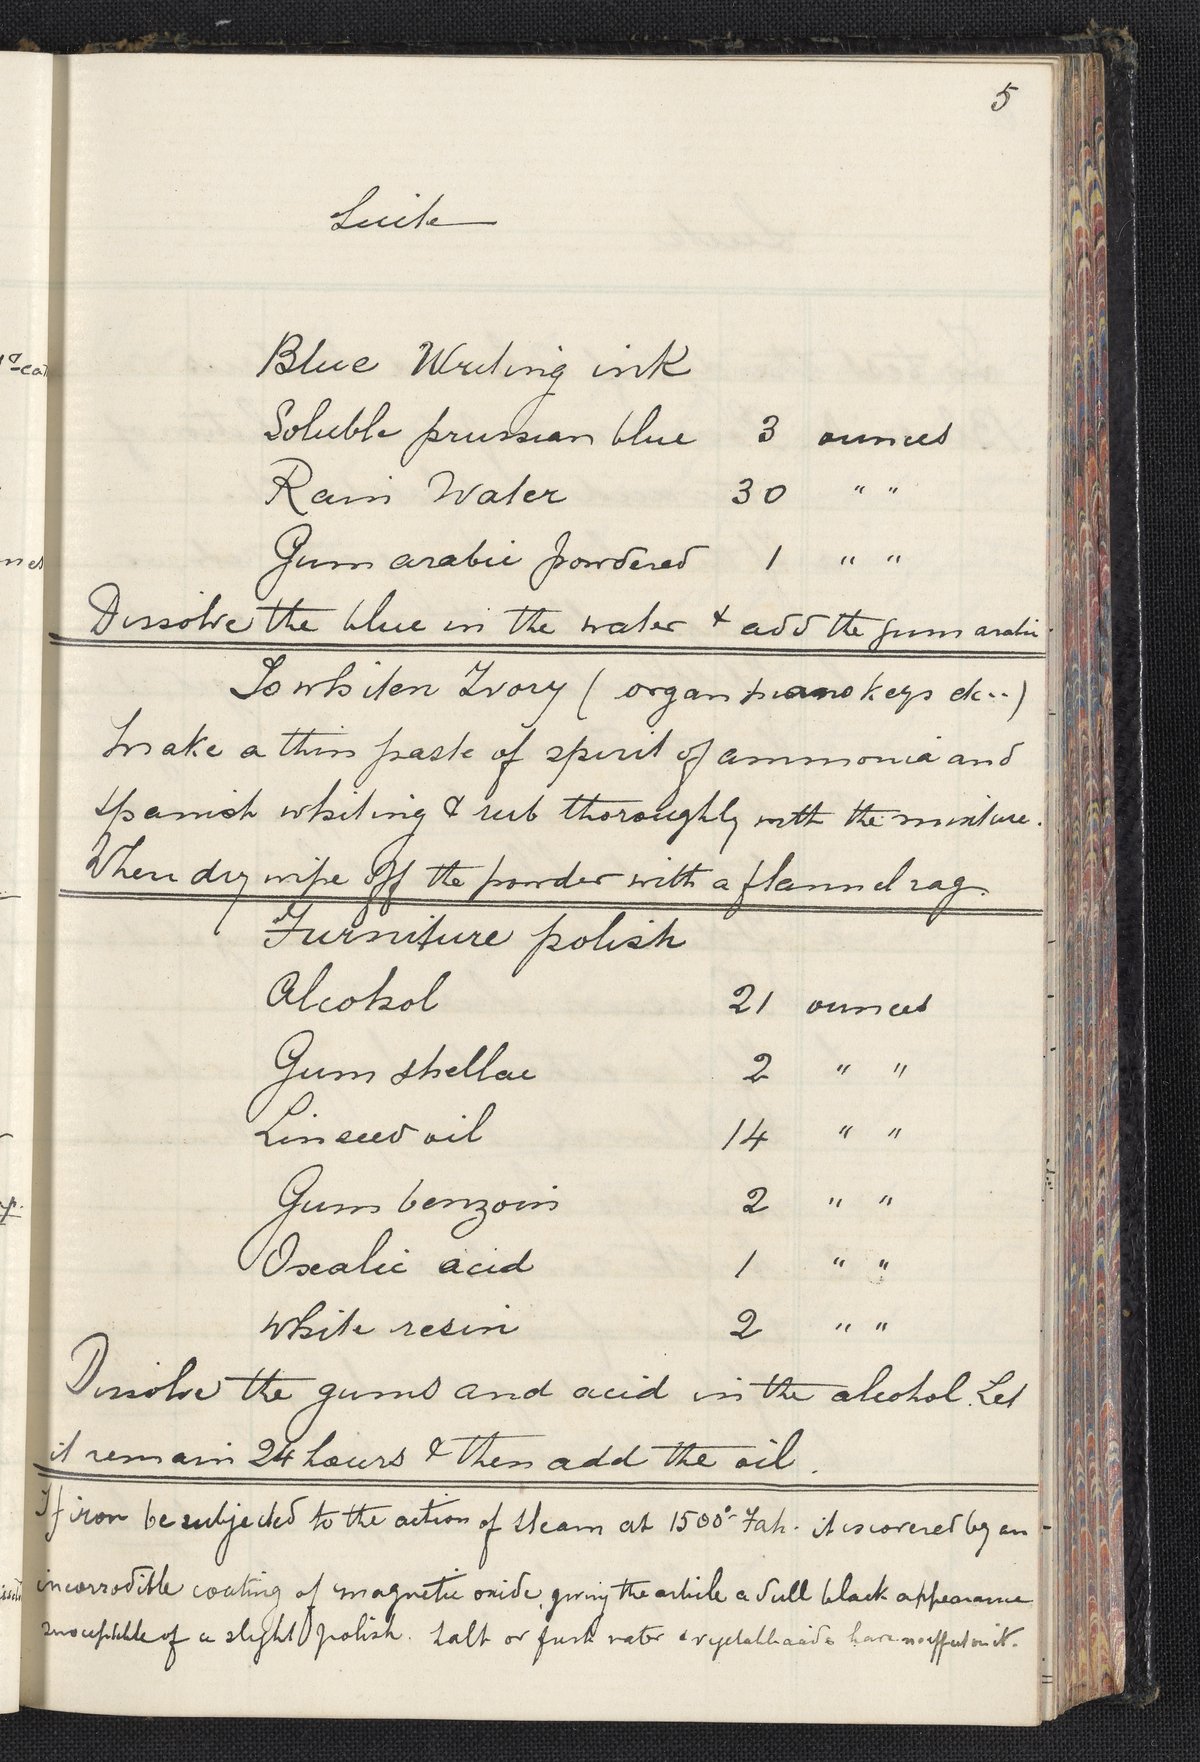 5
Suite
Blue Writing ink
Soluble prussian blue 3 ounces
Rain Water 30 " "
Gum arabic powdered 1 " "
Dissolve the blue in the water & add the gum arabic
To whiten Ivory ( organ piano keys etc..)
Make a thin paste of spirit of ammonia and
spanish whiting & rub thoroughly with the mixture.
When dry wipe off the powder with a flannel rag.
Furniture polish
Alcohol 21 ounces
Gum shellac 2 " "
Linseed oil 14 " "
Gum benzoin 2 " "
Oxalic acid 1 " "
White resin 2 " "
Dissolve the gums and acid in the alcohol. Let
it remain 24 hours & then add the oil.
If iron be subjected to the action of steam at 1500° Fah. it is covered by an
incorrodible coating of magnetic oxide, giving the article a dull black appearance
susceptible of a slight polish. Salt or fresh water & vegetable acids have no effect on it.